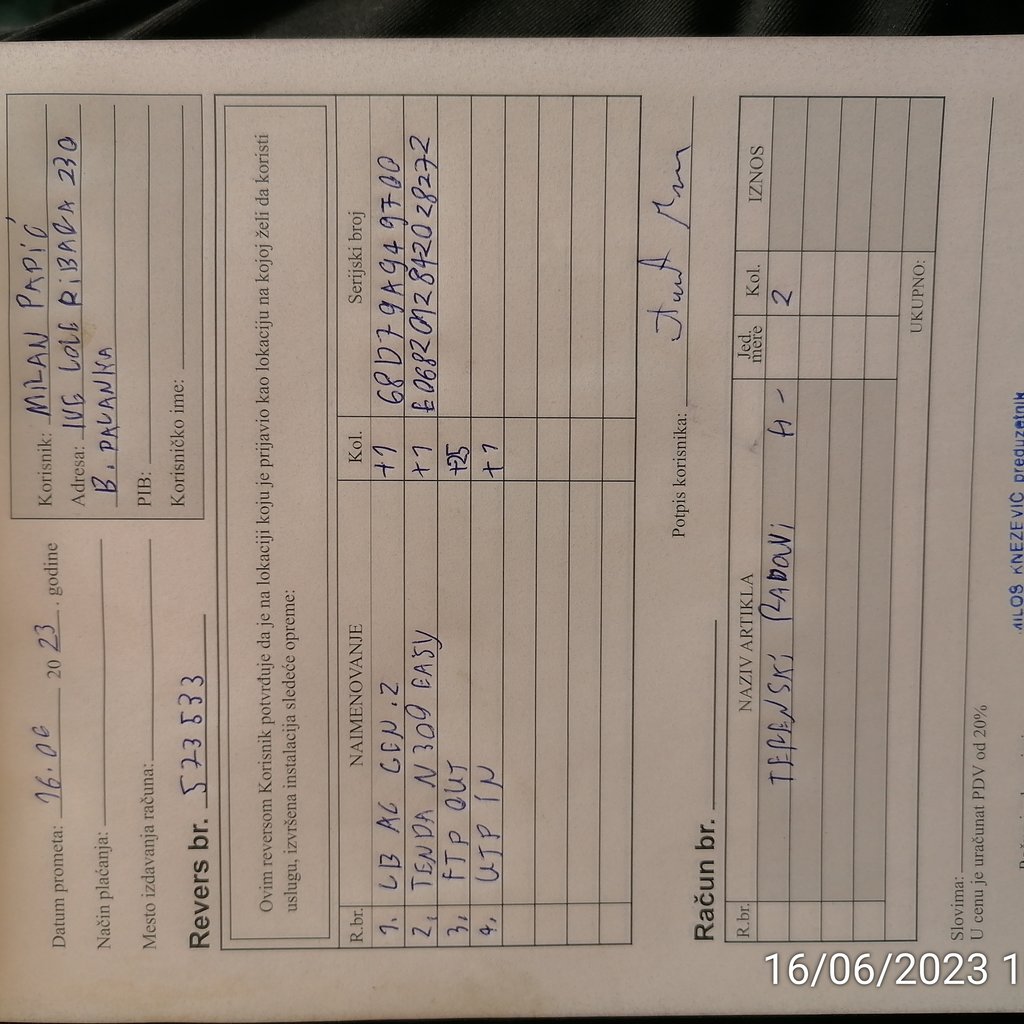 Datum prometa: 16.06 2023. godine
Način plaćanja:
Mesto izdavanja računa:
Korisnik: MILAN PAPIĆ
Adresa: IVE LOLE RIBARA 230
B. PALANKA
PIB:
Korisničko ime:
Revers br. 573533
Ovim reversom Korisnik potvrđuje da je na lokaciji koju je prijavio kao lokaciju na kojoj želi da koristi
uslugu, izvršena instalacija sledeće opreme:
R.br. NAIMENOVANJE Kol. Serijski broj
1. LB AC GEN.2 +1 68D79A949700
2. TENDA N309 EASY +1 E0682092842028272
3. FTP OUT +25
4. UTP IN +1
Potpis korisnika:
Račun br.
R.br. NAZIV ARTIKLA Jed. mere Kol. IZNOS
TERENSKI RADOVI A- 2
UKUPNO:
Slovima:
U cenu je uračunat PDV od 20%
MILOS KNEZEVIC preduzetnik
16/06/2023 1